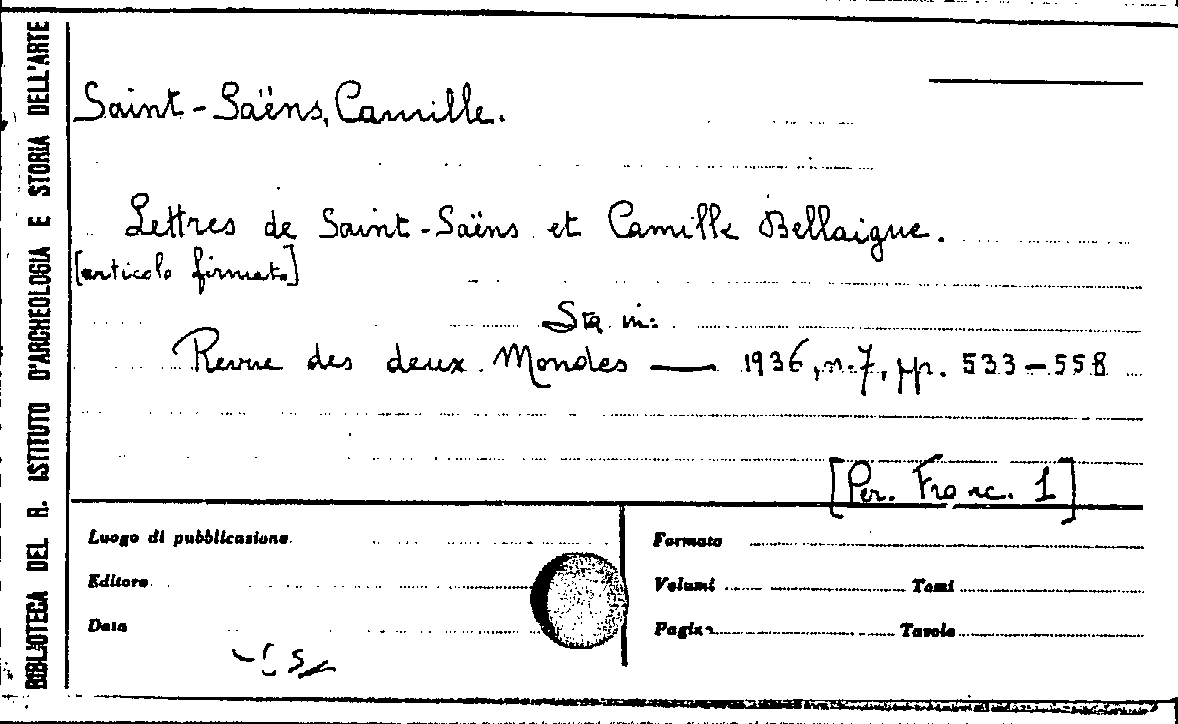 BIBLIOTECA DEL R. ISTITUTO D'ARCHEOLOGIA E STORIA DELL'ARTE
Saint-Saëns, Camille.
Lettres de Saint-Saëns et Camille Bellaigue.
[articolo firmato]
Sta in:
Revue des deux Mondes — 1936, n. 7, pp. 533-558
[Per. Franc. 1]
Luogo di pubblicazione
Formato
Editore
Volumi Tomi
Data
Pagine Tavole